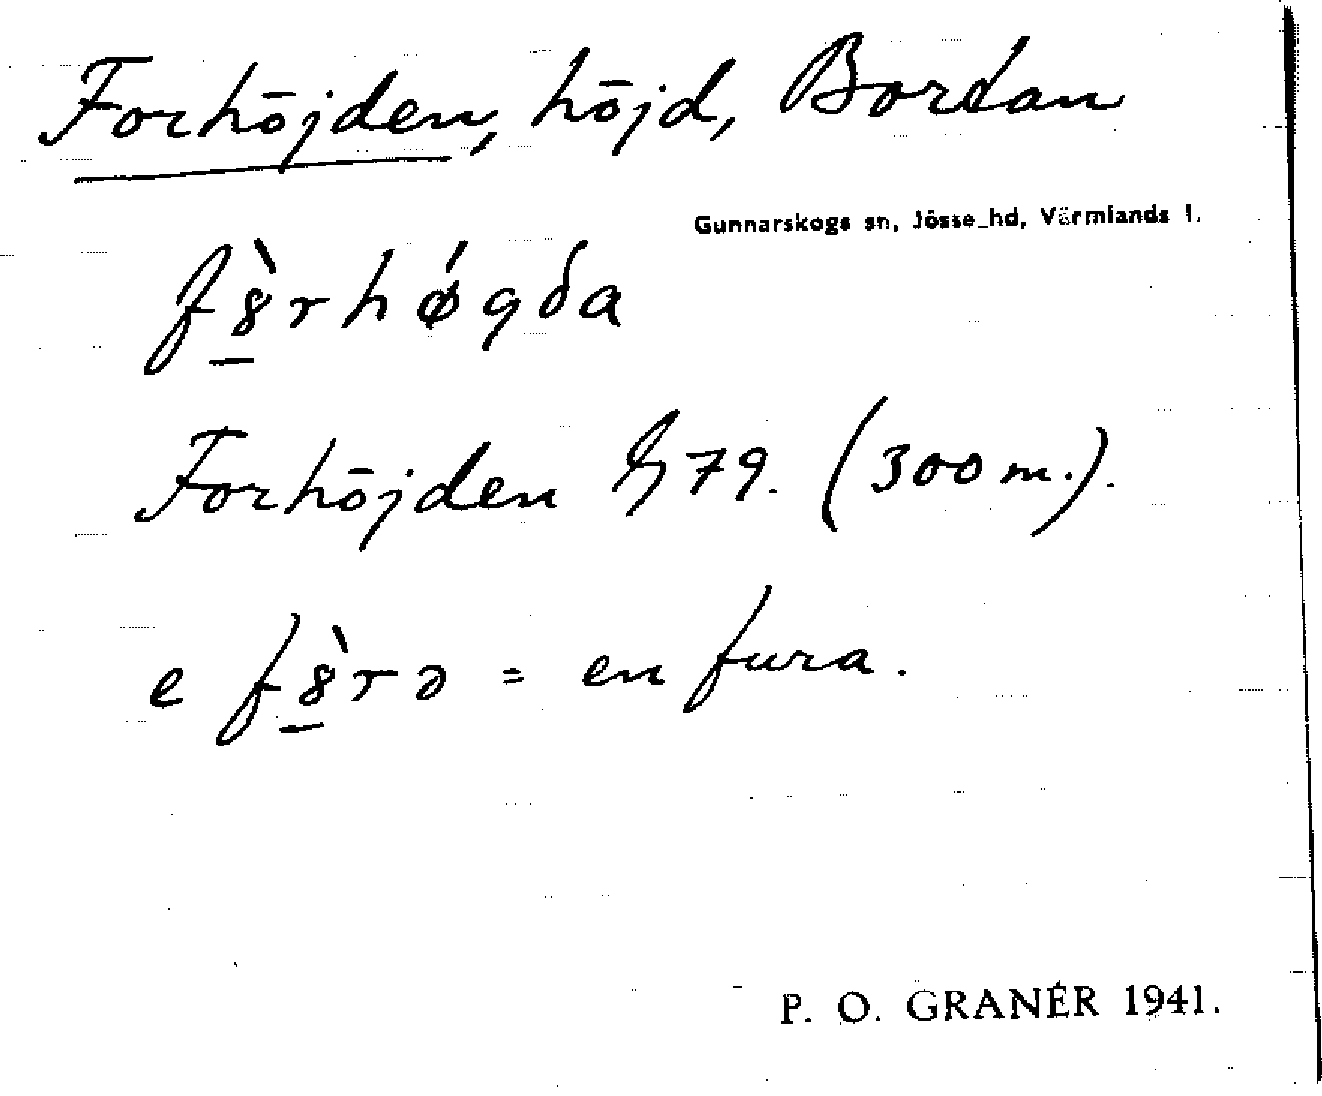 Forhöjden, höjd, Bordan
Gunnarskogs sn, Jösse hd, Värmlands l.
f8̱̀rhǿgda
Forhöjden 79. (300 m.).
e f8̱̀rə = en fura.
P. O. GRANÉR 1941.